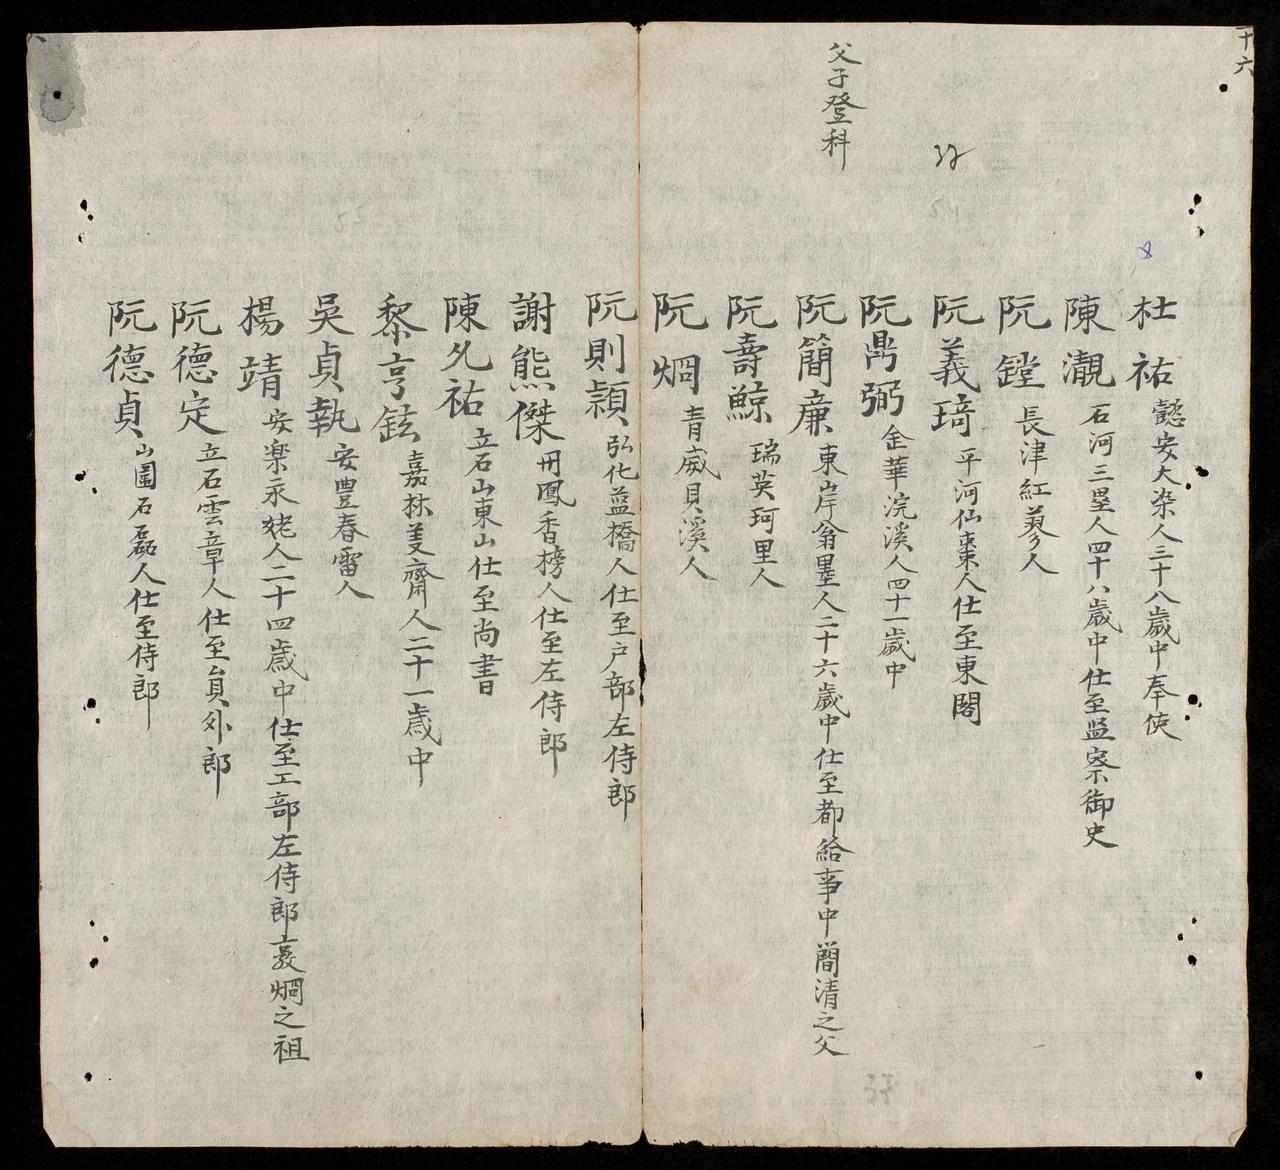 十六
杜祐懿安大染人三十八歲中奉使
陳瀙石河三壘人四十八歲中仕至監察御史
阮鏜長津紅蓼人
阮義琦平河仙棗人仕至東閣
阮鼎弼金華浣溪人四十一歲中
父子登科
阮簡廉東岸翁墨人二十六歲中仕至都給事中簡清之父
阮壽鯨瑞英珂里人
阮烱青威貝溪人
阮則穎弘化益橋人仕至户部左侍郎
謝熊傑丹鳳香榜人仕至左侍郎
陳允祐立石山東山仕至尚書
黎亨鉉嘉林美齋人二十一歲中
吳貞執安豐春雷人
楊靖安楽永姥人二十四歲中仕至工部左侍郎㐮烱之祖
阮德定立石雲章人仕至員外郎
阮德貞山圍石磊人仕至侍郎